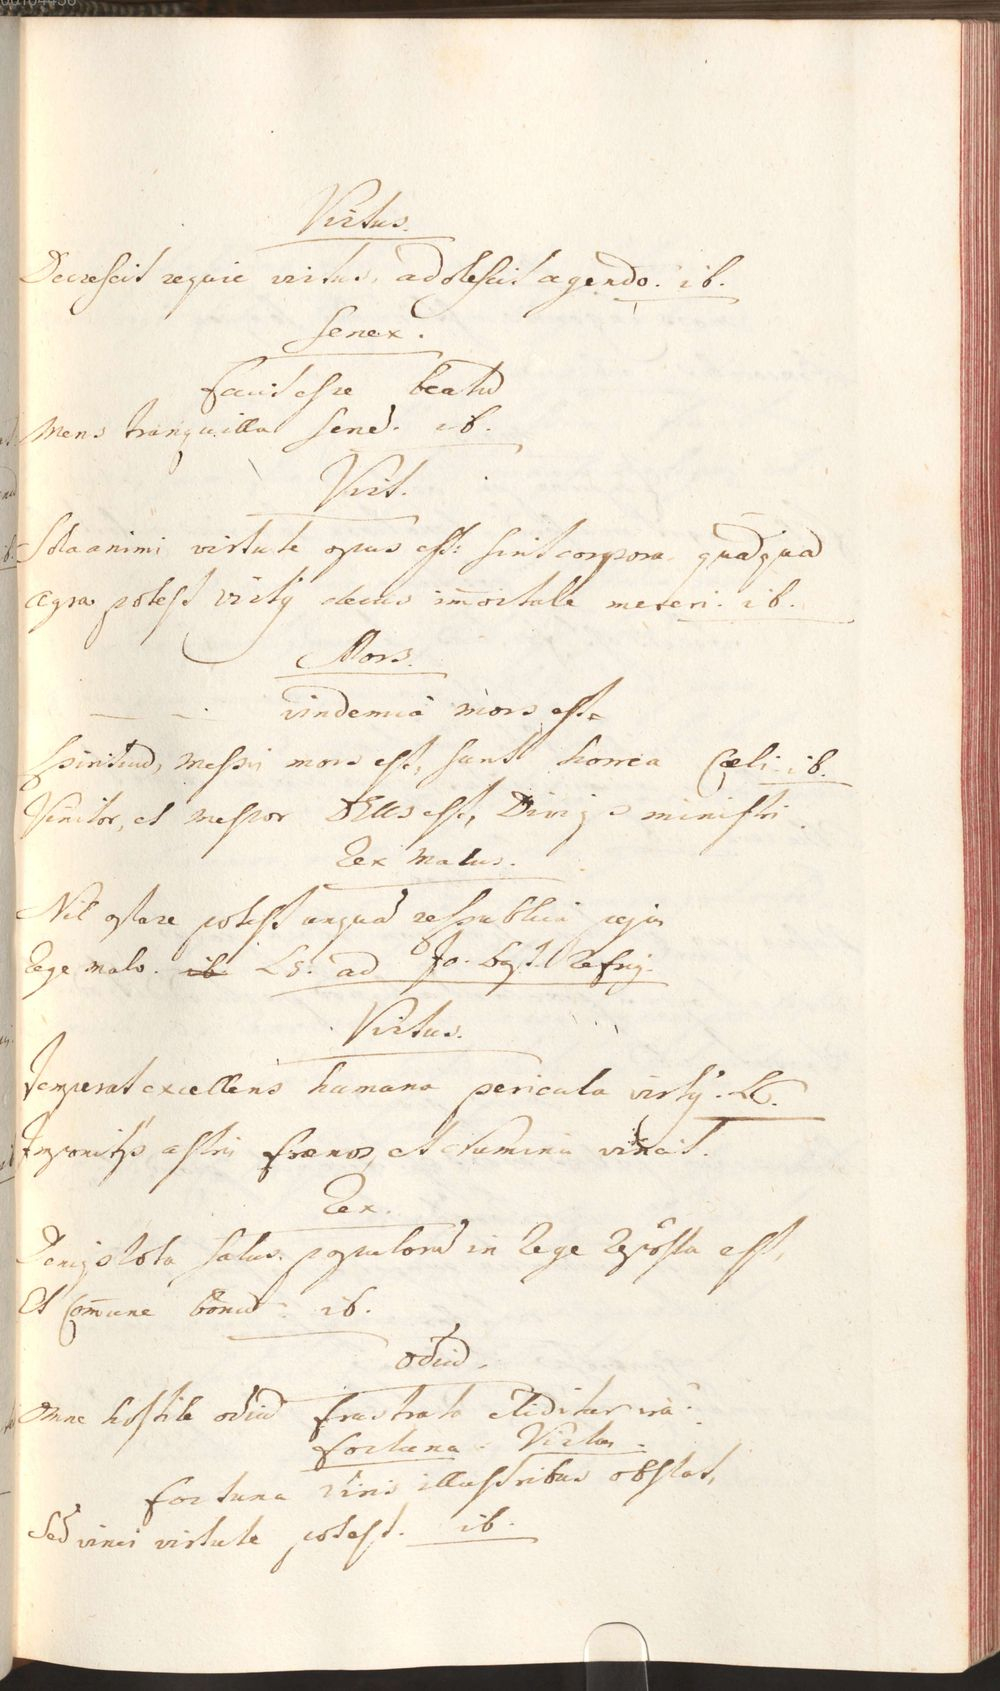 Virtus.
Decrescit requie virtus, adolescit agendo. ib.
Senex.
facit esse beatū
Mens tranquilla senē. ib.
Virt.
Sola animi virtute opus est: sint corpora quāquā
Ægra potest virtꝰ decus im̄ortale mereri. ib.
Mors.
vindemia mors est
Spirituū, messis mors est, sunt horrea Cæli. ib.
Vinitor, et messor DEus est, Diviq; ministri.
Rex malus.
Nil optare potest unquā respublica pejus
Rege malo. ib L5. ad Jo. bapt. Refrig.
Virtus.
Temperat excellens humana pericula virtꝰ. L6.
Imponitq; astris frænos, et numina vincit.
Rex.
Deniq; tota salus populorū in Rege reposta est,
Et Com̄une bonū. ib.
Odiū.
Omne hostile odiū frustrata eliditur ira.
Fortuna. Virtus.
Fortuna viris illustribus obstat,
Sed vinci virtute potest. ib.